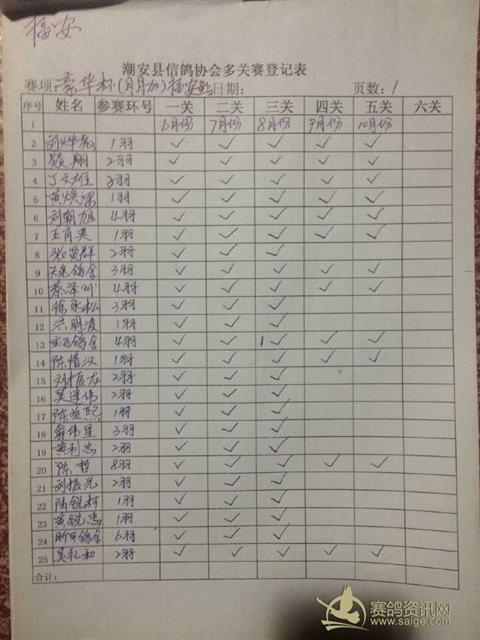 福安
潮安县信鸽协会多关赛登记表
赛项:豪华杯(月月加)福安 日期: 页数:1
序号 姓名 参赛环号 一关 二关 三关 四关 五关 六关
1 6月份 7月份 8月份 9月份 10月份
2 1羽 ✓ ✓ ✓ ✓ ✓
3 翔 2羽 ✓ ✓ ✓ ✓ ✓
4 丁文雄 3羽 ✓ ✓ ✓ ✓ ✓
5 黄焕 1羽 ✓ ✓ ✓ ✓ ✓
6 刘朝旭 4羽 ✓ ✓ ✓ ✓ ✓
7 王有英 1羽 ✓ ✓ ✓ ✓ ✓
8 张贤群 2羽 ✓ ✓ ✓
9 鸽舍 3羽 ✓ ✓ ✓ ✓ ✓
10 蔡泽 4羽 ✓ ✓ ✓ ✓ ✓
11 徐 松 3羽 ✓ ✓ ✓
12 洪明波 1羽 ✓ ✓ ✓
13 鸽舍 4羽 ✓ ✓ 1✓ ✓ ✓
14 陈惜汉 1羽 ✓ ✓ ✓ ✓ ✓
15 刘振龙 2羽 ✓ ✓ ✓
16 吴 伟 2羽 ✓ ✓ ✓
17 陈益熙 1羽 ✓ ✓ ✓
18 伟星 3羽 ✓ ✓ ✓
19 黄利忠 2羽 ✓ ✓ ✓
20 陈哲 8羽 ✓ ✓ ✓ ✓ ✓
21 刘振光 2羽 ✓ ✓ ✓
22 陆锐柯 1羽 ✓ ✓ ✓
23 黄锐忠 1羽 ✓ ✓ ✓
24 鸽舍 6羽 ✓ ✓ ✓
25 吴礼和 2羽 ✓ ✓ ✓ ✓ ✓
合计:
赛鸽资讯网
www.saige.com